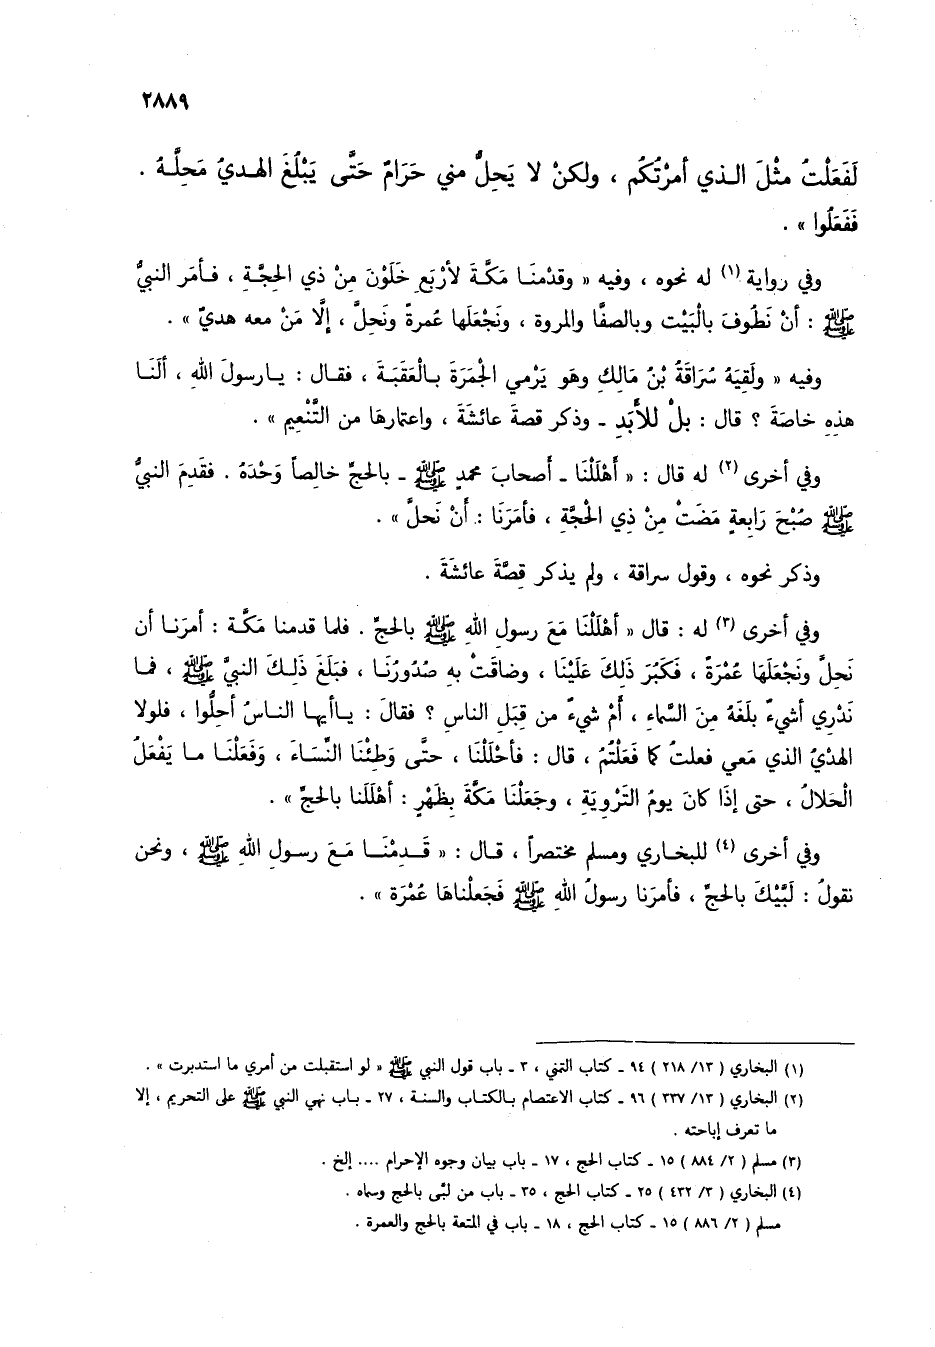 ٢٨٨٩
لَفَعَلْتُ مثْلَ الـذي أمرْتُكُم ، ولكنْ لا يَحِلُّ مني حَرَامٌ حَتَّى يَبْلُغَ الهـديُ مَحِلَّـهُ .
فَفَعَلُوا » .
وفي رواية (١) له نحوه ، وفيه « وقدْمنَـا مَكَّةَ لأرْبَع خَلَوْنَ مِنْ ذي الحِجَّـةِ ، فـأمَر النبيُّ
ﷺ : أنْ نَطُوفَ بالْبَيْت وبالصفَّا والمروة ، ونَجْعَلَها عُمرةً ونَحِلَّ ، إلَّا مَنْ معه هديٌ » .
وفيه « ولَقِيَهُ سُرَاقَةُ بْنُ مَالِكٍ وهَو يَرْمي الجَمرَةَ بـالْعَقَبَـةَ ، فقـال : يـارسولَ اللهِ ، ألَنَـا
هذِهِ خاصَةً ؟ قال : بلْ للأَبَدِ ـ وذكر قصةَ عائشَةَ ، واعتمارهَا من التَّنْعِيم » .
وفي أخرى (٢) له قال : « أهْلَلْنَا ـ أصحابَ محمدٍ ﷺ ـ بالحجِّ خالِصاً وَحْدَهُ . فقَدِمَ النبيُّ
ﷺ صُبْحَ رَابِعةٍ مَضَتْ مِنْ ذِي الْحَجَّةِ ، فأمَرَنَا : أَنْ نَحلَّ » .
وذكر نحوه ، وقول سراقة ، ولم يذكر قِصَّةَ عائشَةَ .
وفي أخرى (٣) له : قال « أهْلَلْنَا مَعَ رسول اللهِ ﷺ بالحجِّ . فلما قدمنا مَكَّـة : أمرَنـا أن
نَحلَّ ونَجْعَلَهَا عُمْرَةً ، فَكَبُرَ ذَلِكَ عَلَيْنَا ، وضاقَتْ به صُدُورُنَـا ، فبَلَغَ ذَلِـكَ النبيَّ ﷺ ، فمـا
نَدْرِي أشيءٌ بلَغَهُ مِنَ السَّماءِ ، أمْ شيءٌ من قِبَلِ الناسِ ؟ فقالَ : يـاأيهـا النـاسُ أحِلُّوا ، فلولا
الهدْيُ الذي مَعي فعلتُ كما فَعَلْتُمْ ، قال : فأحْلَلْنَا ، حتَّى وَطِئْنَا النِّسَـاءَ ، وَفَعَلْنَـا مـا يَفْعَلُ
الْحَلالُ ، حتى إذَا كانَ يومُ التَرْوِيَةِ ، وجَعَلْنَا مَكَّةَ بِظَهْرٍ : أهْلَلَنا بالحجِّ » .
وفي أخرى (٤) للبخـاري ومسلم مختصراً ، قـال : « قَـدِمْنَـا مَـعَ رسـولِ اللهِ ﷺ ، ونحن
نقولُ : لَبَّيْكَ بالحجِّ ، فأمرَنا رسولُ اللهِ ﷺ فَجَعلْناهَا عُمْرَة » .
(١) البخاري ( ١٣/ ٢١٨ ) ٩٤ ـ كتاب التمني ، ٣ ـ باب قول النبي ﷺ « لو استقبلت من أمري ما استدبرت » .
(٢) البخاري ( ١٣/ ٣٣٧ ) ٩٦ ـ كتاب الاعتصام بـالكتـاب والسنـة ، ٢٧ ـ بـاب نهي النبي ﷺ على التحريم ، إلا
ما تعرف إباحته .
(٣) مسلم ( ٢/ ٨٨٤ ) ١٥ ـ كتاب الحج ، ١٧ ـ باب بيان وجوه الإحرام .... إلخ .
(٤) البخاري ( ٣/ ٤٣٢ ) ٢٥ ـ كتاب الحج ، ٣٥ ـ باب من لبَّى بالحج وسماه .
مسلم ( ٢/ ٨٨٦ ) ١٥ ـ كتاب الحج ، ١٨ ـ باب في المتعة بالحج والعمرة .